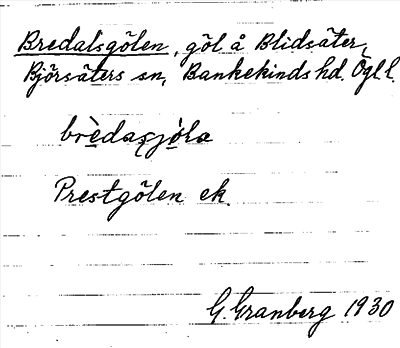 Bredalsgölen, göl å Blidsäter,
Björsäters sn, Bankekinds hd. Ögl l.
Prestgölen ek.
G. Granberg 1930